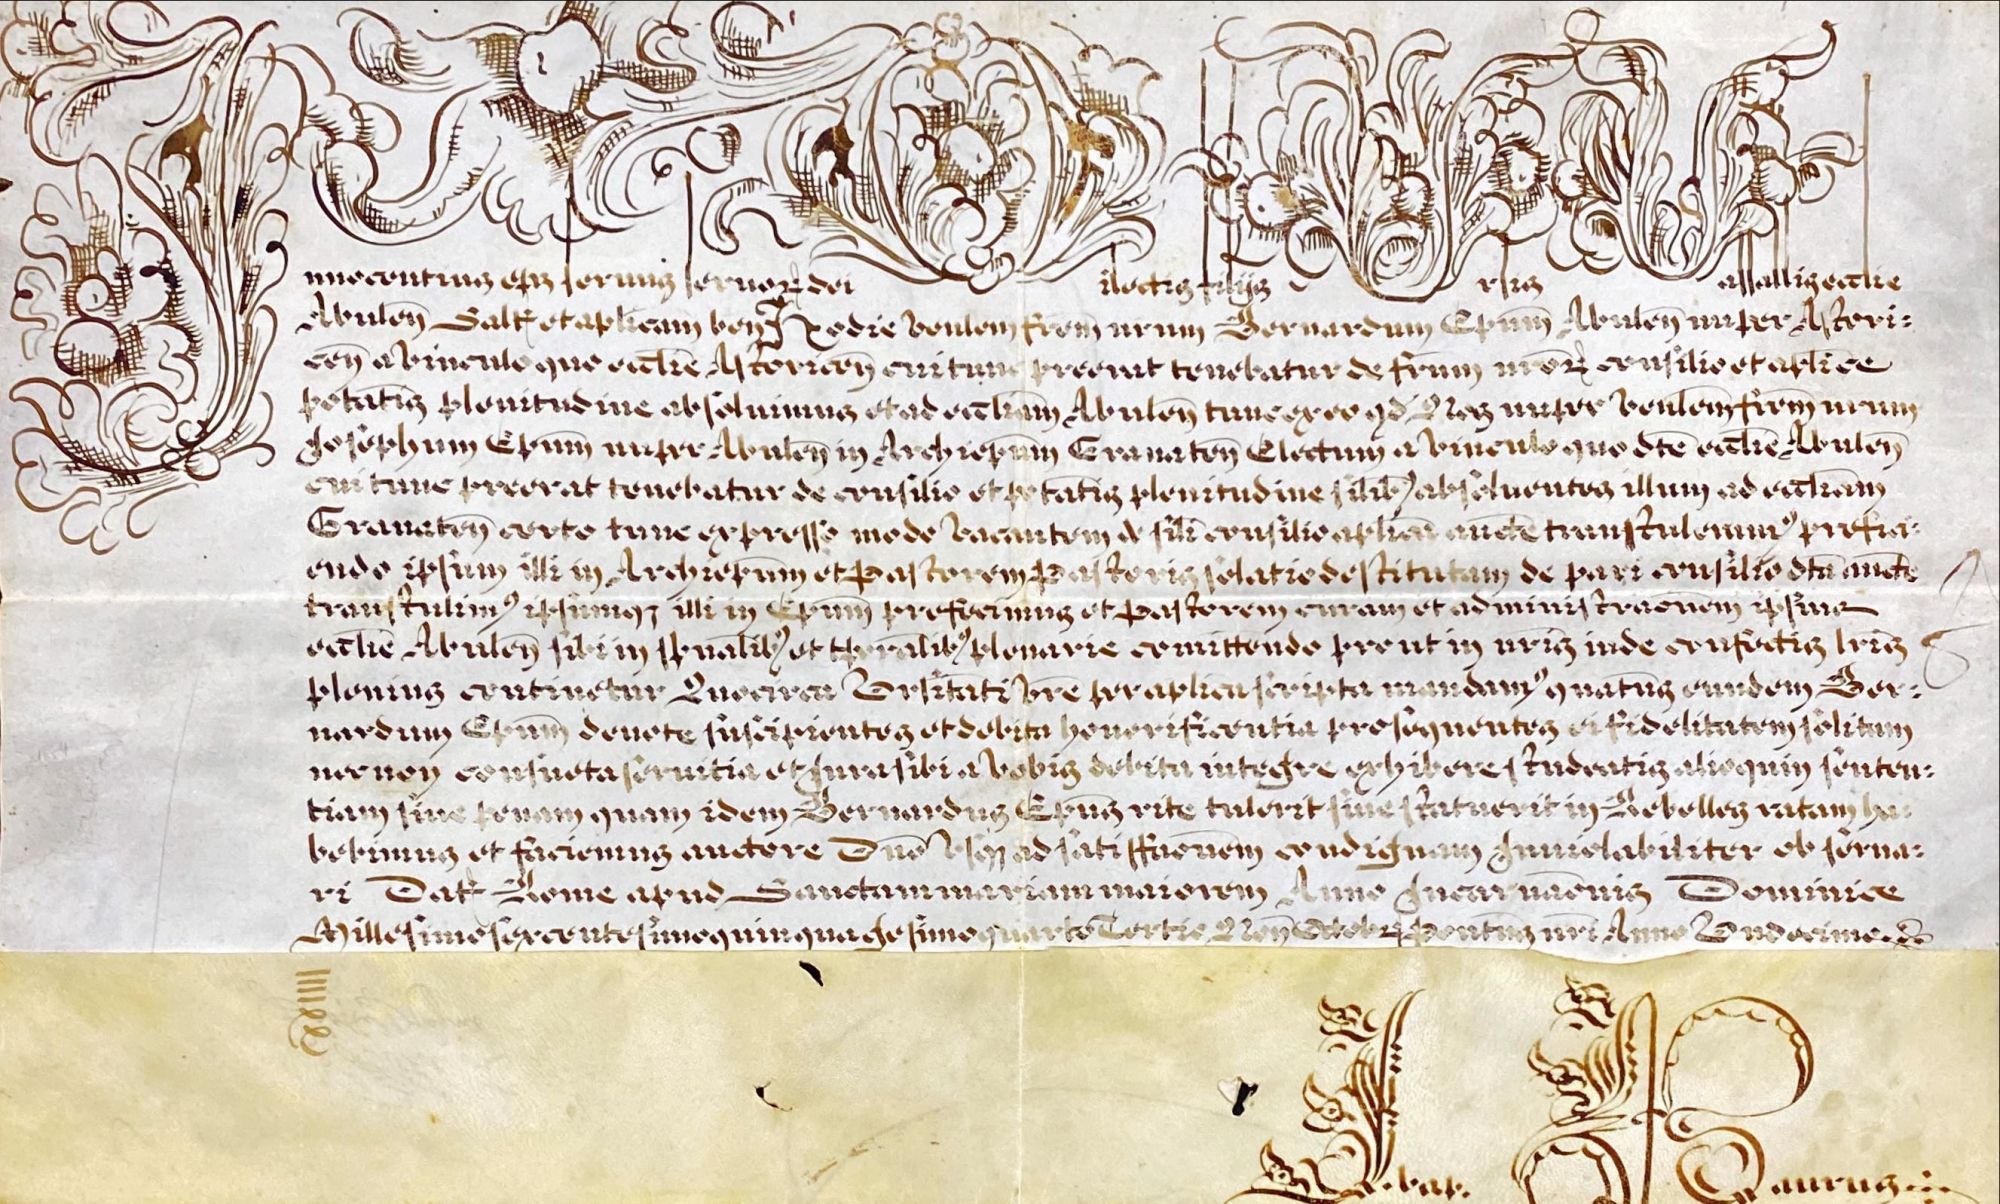 Innocentius eps servus servoR dei Dilectis filijs Universis Vassallis ecclie
Abulen Salt et aplicam ben Hodie venlem frem nrum Bernardum Epum Abulen nuper Astori:
cen a vinculo quo ecclie Astoricen cui tunc preerat tenebatur de frum nroR consilio et aplice
potatis plenitudine absolvimus et ad eccliam Abulen tunc ex eo qd Nos nuper venlem frem nrum
Josephum Epum nuper Abulen in Archiepum Granaten Electum a vinculo quo dte ecclie Abulen
cui tunc preerat tenebatur de consilio et potatis plenitudine silibs absolventes illum ad eccliam
Granaten certo tunc expresso modo vacantem de sili consilio aplica aucte transtuleramus prefici:
endo ipsum illi in Archiepum et Pastorem Pastoris solatio destitutam de pari consilio dta aucte
transtulims ipsumq illi in Epum prefecimus et Pastorem curam et administraonem ipsius
ecclie Abulen sibi in spualibs et tporalibs plenarie comittendo prout in nris inde confectis lris
plenius continetur Quocirca Vrsitati vre per aplica scripta mandams quatus eundem Ber:
nardum Epum devote suscipientes et debita honorificentia prosequentes ei fidelitatem solitam
necnon consueta servitia et Jura sibi a vobis debita integre exhibere studeatis alioquin senten:
tiam sive penam quam idem Bernardus Epus rite tulerit sive statuerit in Rebelles ratam ha:
bebimus et faciemus auctore Dno usq ad satisffaonem condignam Inviolabiliter observa:
ri Dat Rome apud Sanctam mariam maiorem Anno Incarnaonis Dominice
Millesimo sexcentesimo quinquagesimo quarto Tertio Non Octobr Pontus nri Anno Undecimo